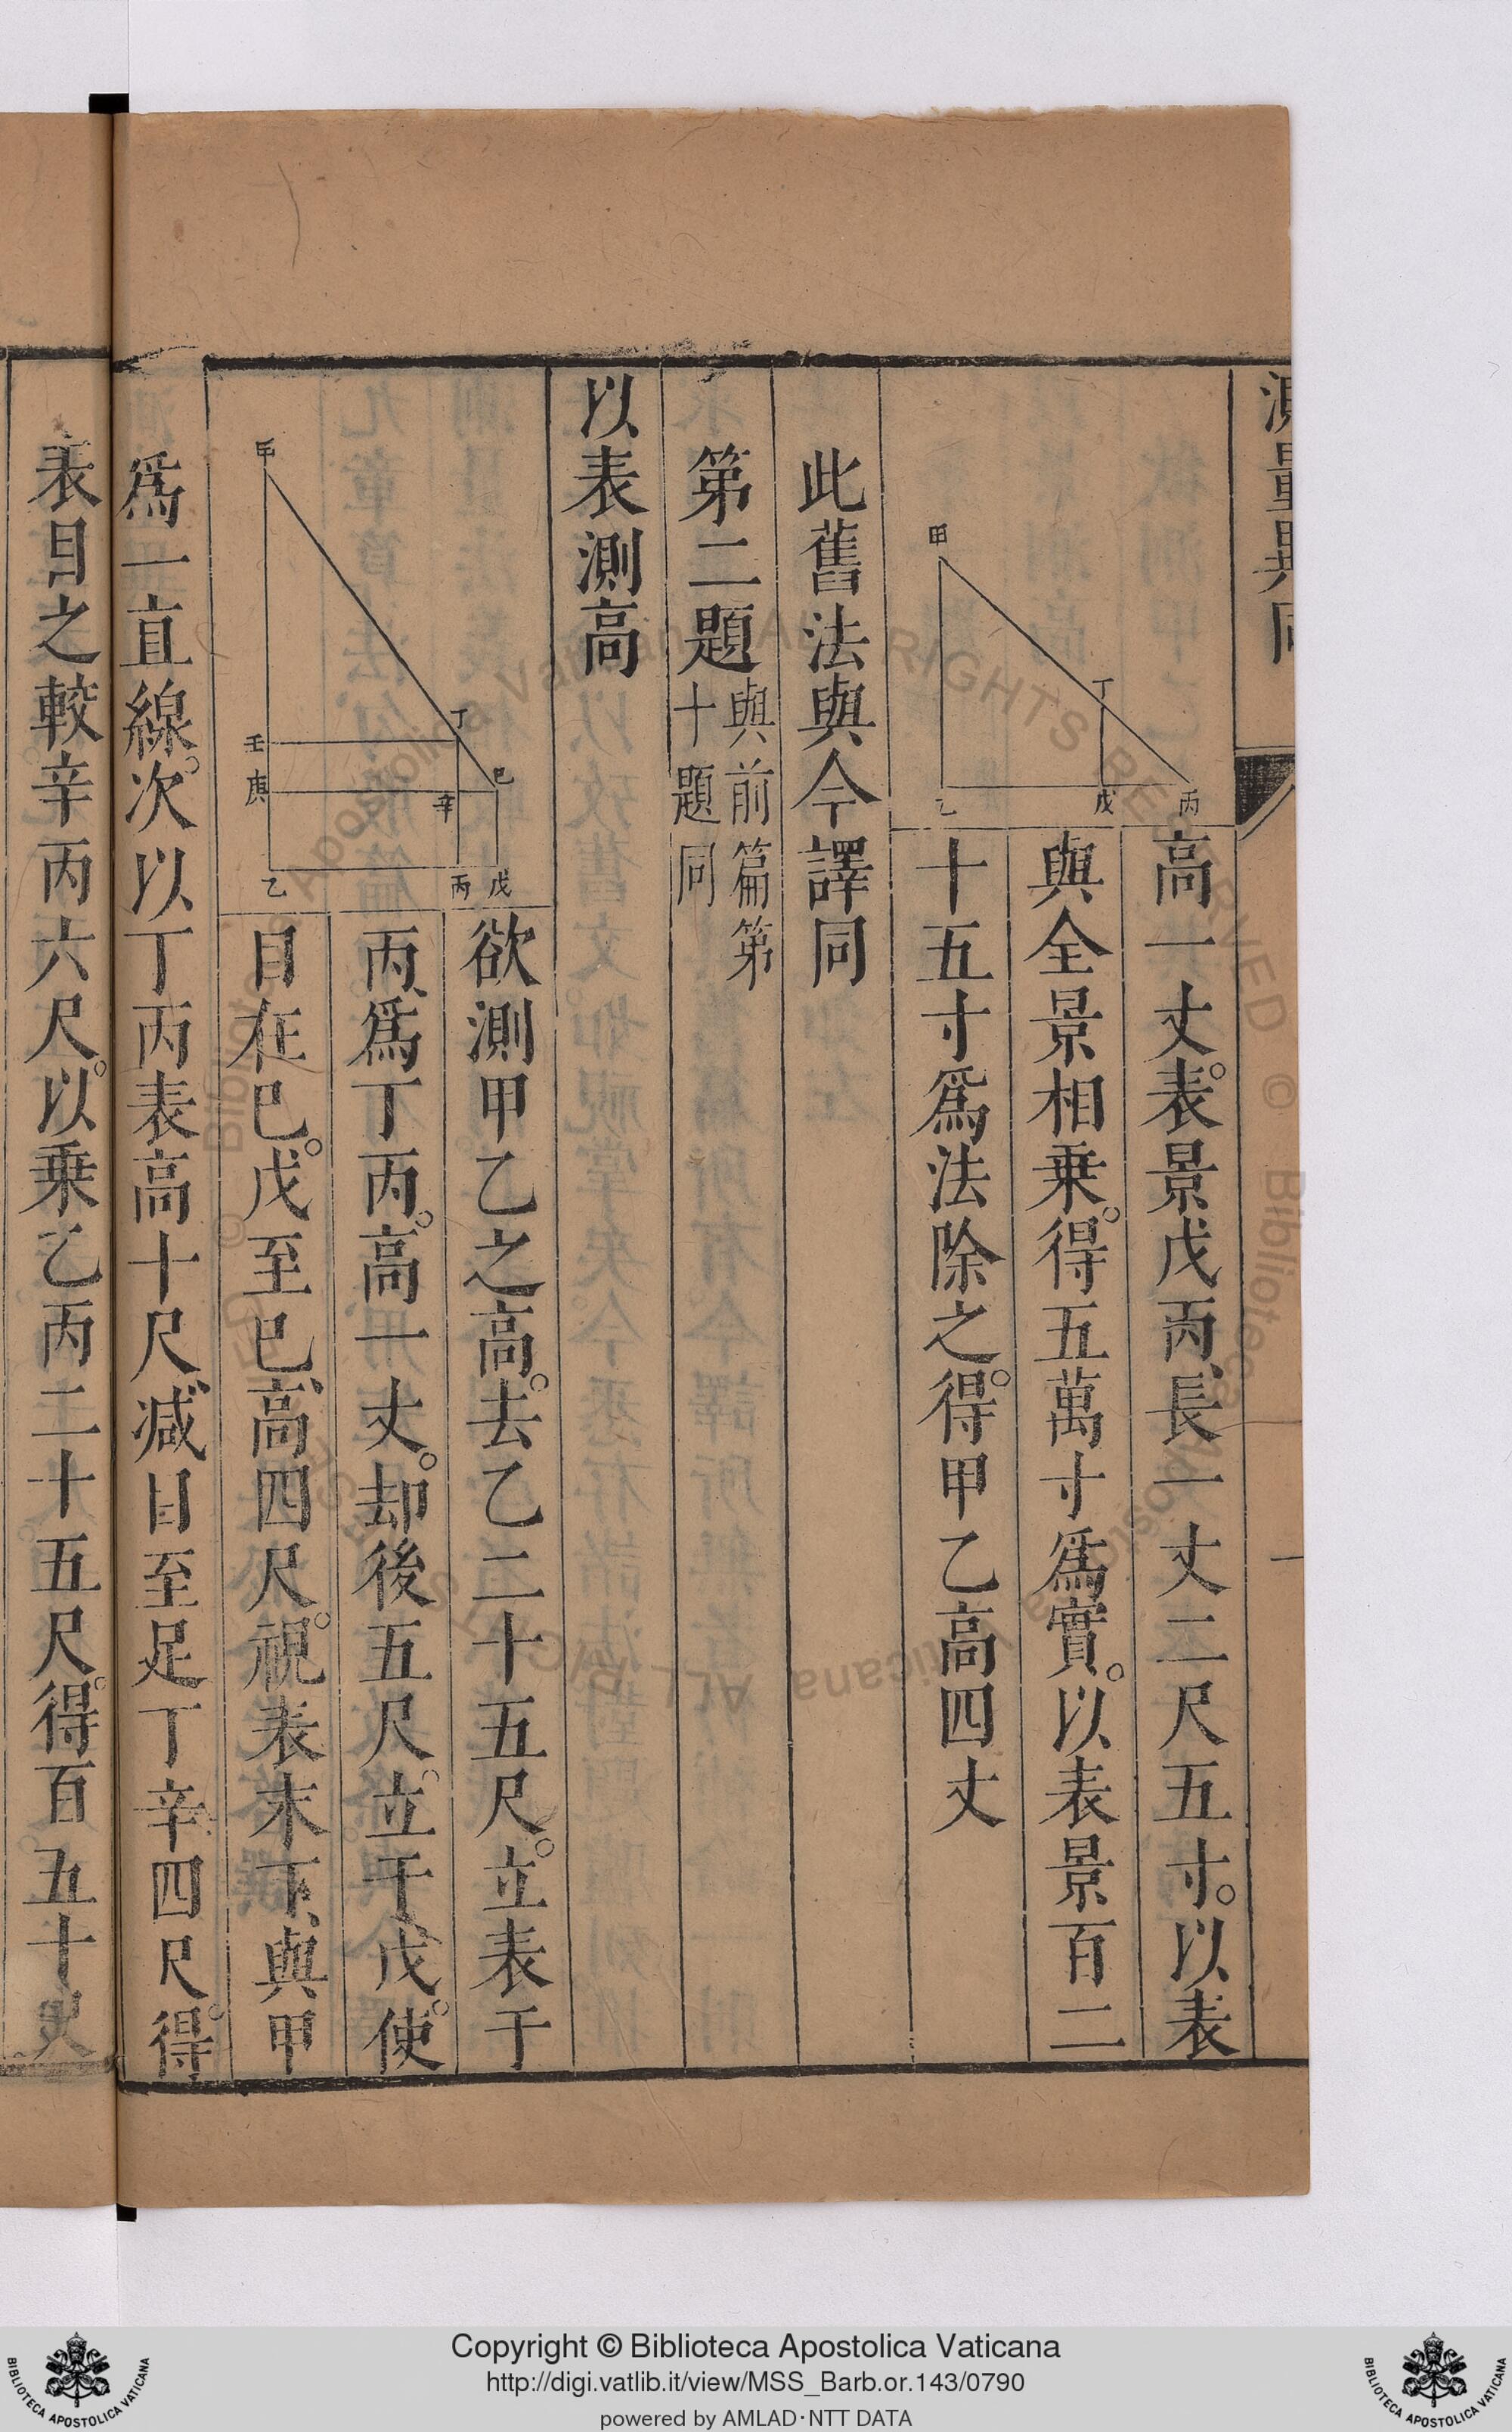 測量異同
一
甲
丁
乙
戊
丙
高一丈。表景戊丙、長一丈二尺五寸。以表
與全景相乗。得五萬寸爲實。以表景百二
十五寸爲法除之。得甲乙高四丈
此舊法與今譯同
第二題與前篇第
十題同
以表測高
甲
丁
壬
巳
庚
辛
乙
丙
戊
欲測甲乙之高。去乙二十五尺。立表于
丙、爲丁丙。高一丈。却後五尺。立于戊。使
目在巳。戊至巳、高四尺。視表末、下與甲
爲一直線。次以丁丙表高十尺、减目至足丁辛四尺。得
表目之較辛丙六尺。以乗乙丙二十五尺。得百五十
Copyright © Biblioteca Apostolica Vaticana
http://digi.vatlib.it/view/MSS_Barb.or.143/0790
powered by AMLAD·NTT DATA
BIBLIOTECA APOSTOLICA VATICANA
BIBLIOTECA APOSTOLICA VATICANA